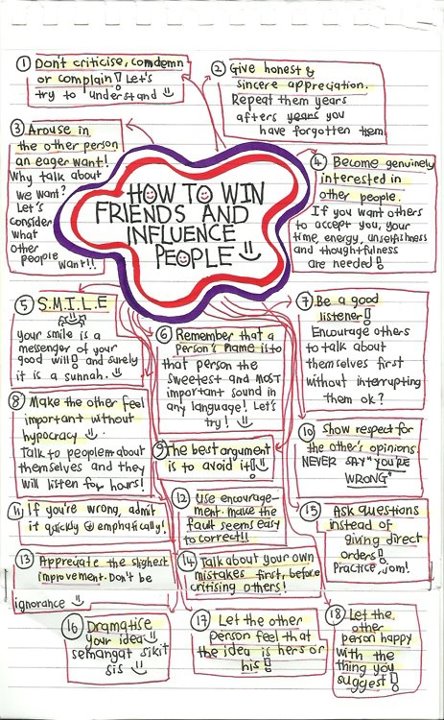 ① Don't criticise, comdemn
or complain! Let's
try to understand
② Give honest &
sincere appreciation.
Repeat them years
afters years you
have forgotten them
③ Arouse in
the other person
an eager want!
Why talk about
we want?
Let's
consider
what
other
people
want!!
HOW TO WIN
FRIENDS AND
INFLUENCE
PEOPLE
④ Become genuinely
interested in
other people.
If you want others
to accept you, your
time, energy, unselfishness
and thoughtfulness
are needed!
⑤ S.M.I.L.E
Your smile is a
messenger of your
good will! and surely
it is a sunnah.
⑥ Remember that a
person's name is to
that person the
sweetest and MOST
important sound in
any language! Let's
try!
⑦ Be a good
listener!
Encourage others
to talk about
themselves first
without interrupting
them ok?
⑧ Make the other feel
important without
hypocracy
Talk to people about
themselves and they
will listen for hours!
⑨ The best argument
is to avoid it!
⑩ Show respect for
the other's opinions.
NEVER SAY "YOU'RE
WRONG"
⑪ If you're wrong, admit
it quickly & emphatically!
⑫ Use encourage-
ment. make the
fault seems easy
to correct!!
⑬ Appreciate the slighest
improvement. Don't be
ignorance
⑭ Talk about your own
mistakes first, before
critising others!
⑮ Ask questions
instead of
giving direct
orders!
Practice jom!
⑯ Dramatise
your idea
semangat sikit
sis
⑰ Let the other
person feel that
the idea is hers or
his!
⑱ Let the
other
person happy
with the
thing you
suggest!